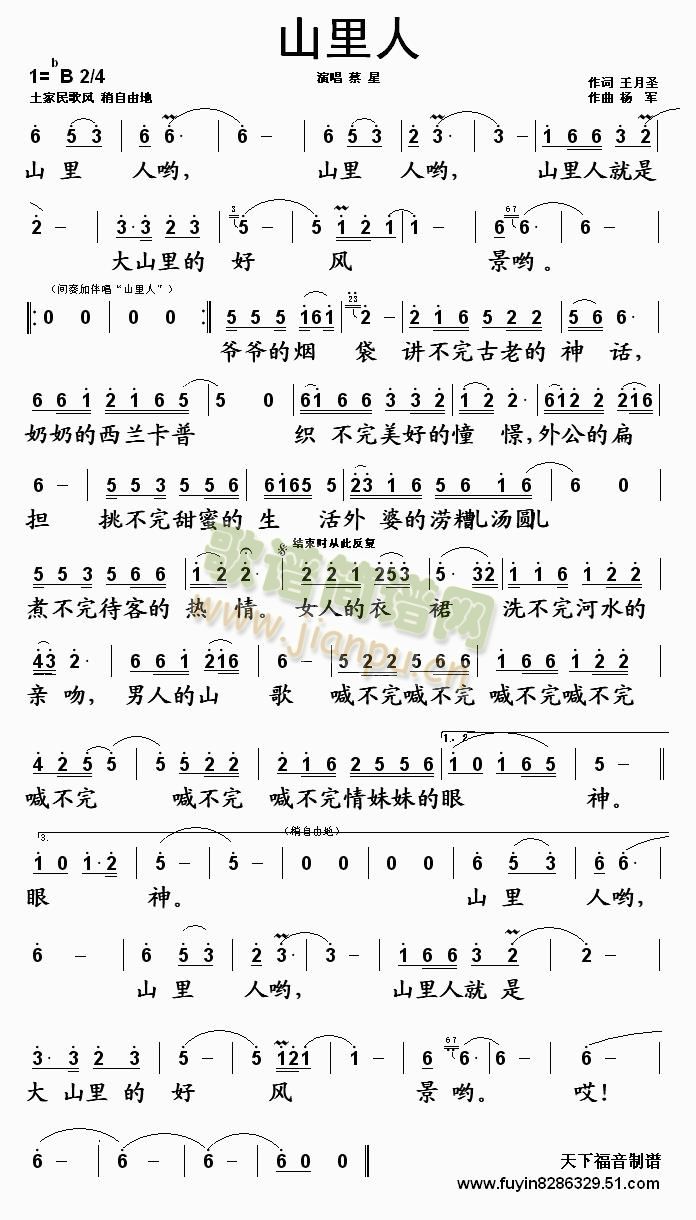 山里人
1= ♭B 2/4
演唱 蔡 星
作词 王月圣
土家民歌风 稍自由地
作曲 杨 军
6 5 3 | 6 6· | 6 - | 6 5 3 | 2 3· | 3 - | 1 6 6 3 2 |
山 里 人哟, 山里 人哟, 山里人就是
2 - | 3·3 2 3 | 5 - | 5 1 2 1 | 1 - | 6 6· | 6 - |
大山里的 好 风 景哟。
(间奏加伴唱“山里人”)
‖: 0 0 | 0 0 :‖ 5 5 5 161 | 2 - | 2 1 6 5 2 2 | 5 1 6· |
爷爷的烟 袋 讲不完古老的 神 话,
6 6 1 2 1 6 5 | 5 0 | 61 6 6 3 3 2 | 1 2 2· | 612 2 216 |
奶奶的西兰卡普 织 不完美好的憧 憬,外公的扁
6 - | 5 5 3 5 5 6 | 6165 5 | 23 1 6 5 6 1 6 | 6 0 |
担 挑不完甜蜜的 生 活外 婆的涝糟儿汤圆儿
结束时从此反复
5 5 3 5 6 6 | 1 2 2· | 2 2 1 253 | 5· 32 | 1 1 6 1 2 2 |
煮不完待客的 热 情。 女人的衣 裙 洗不完河水的
43 2· | 6 6 1 216 | 6 - | 5 2 2 5 2 2 | 6 1 1 6 2 2 |
亲 吻, 男人的山 歌 喊不完喊不完 喊不完喊不完
1. 2.
4 2 5 5 | 5 5 2 2 | 2 1 6 2 5 5 6 | 1 0 1 6 5 | 5 - |
喊不完 喊不完 喊不完情妹妹的眼 神。
3.
(稍自由地)
1 0 1·2 | 5 - | 5 - | 0 0 | 0 0 | 6 5 3 | 6 6· |
眼 神。 山 里 人哟,
6 - | 6 5 3 | 2 3· | 3 - | 1 6 6 3 2 | 2 - |
山 里 人哟, 山里人就 是
3·3 2 3 | 5 - | 5 121 | 1 - | 6 6· | 6 - | 6 - |
大 山里 的 好 风 景 哟。 哎!
6 - | 6 - | 6 0 0 ‖
天下福音制谱
www.fuyin8286329.51.com
歌谱简谱网
www.jianpu.cn